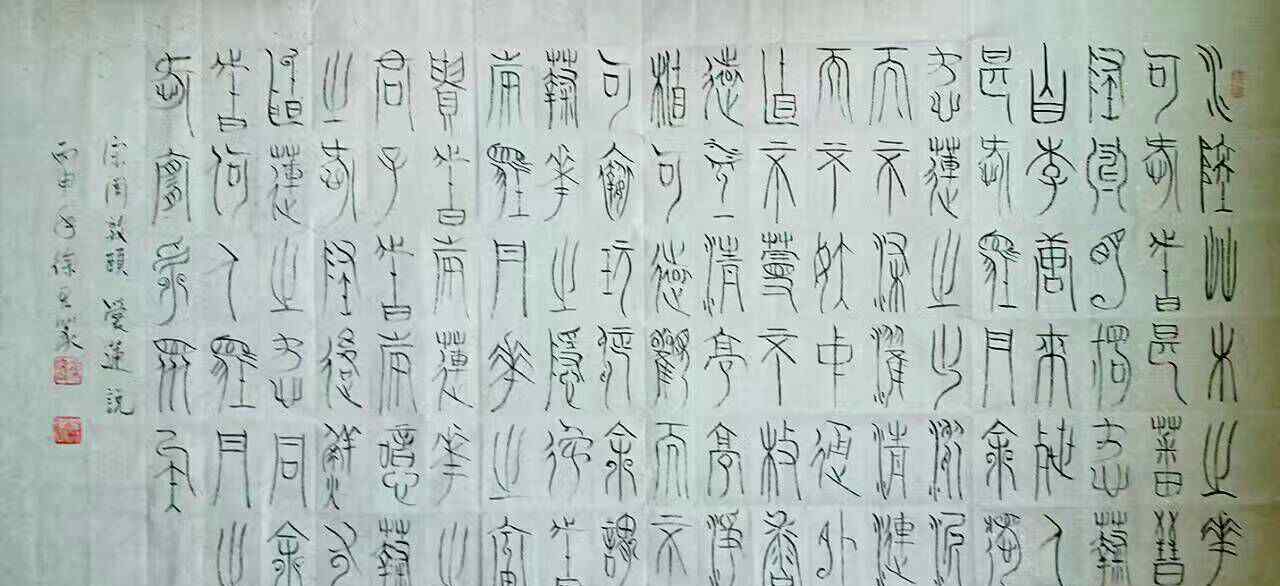 水陸艸木之花
可愛者甚蕃晉
陶淵明獨愛菊
自李唐來世人
甚愛牡丹余獨
愛蓮之出淤泥
而不染濯清漣
而不妖中通外
直不蔓不枝香
遠益清亭亭淨
植可遠觀而不
可褻玩焉余謂
菊花之隱逸者
也牡丹花之富
貴者也蓮花之
君子者也噫菊
之愛陶後鮮有
聞蓮之愛同余
者何人牡丹之
愛宜乎眾矣
宋周敦頤 愛蓮説
丙申 徐 篆